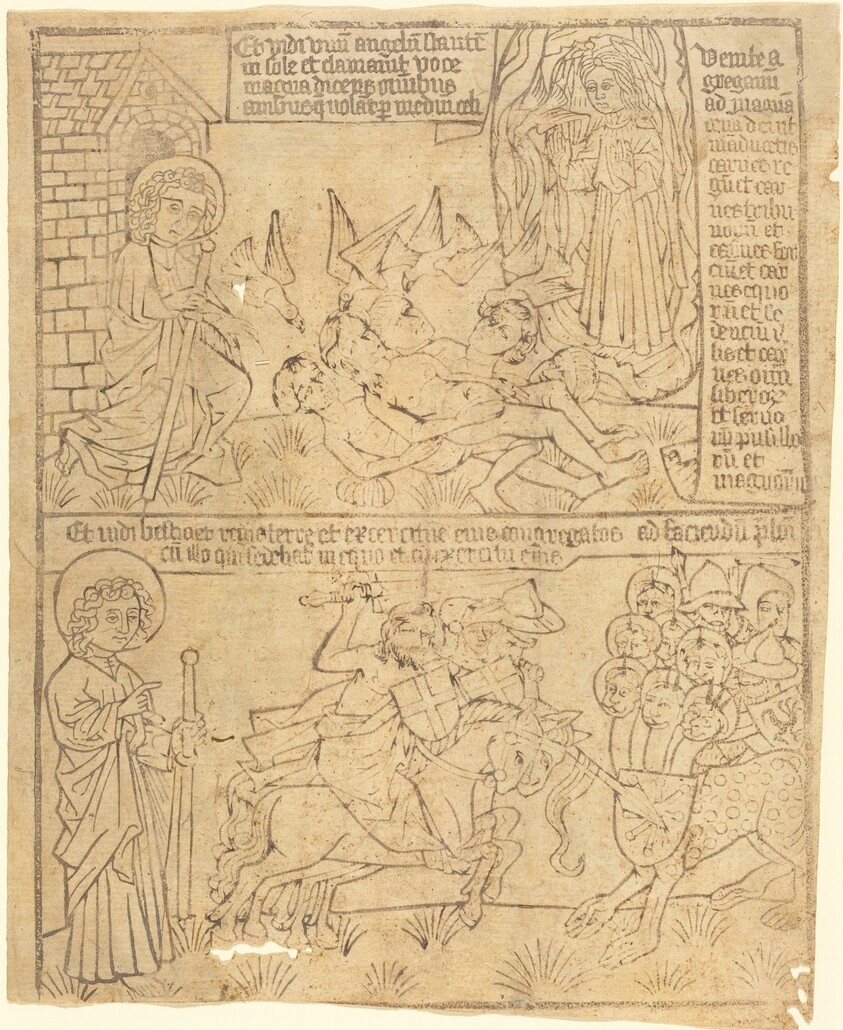 Et vidi vnū angelū stantē
in sole et clamauit voce
magna dicens omibus
auibus q volāt p mediū celi
Venite ⁊
gregami
ad magnā
cenā dei ut
māducetis
carnes re
gū et car
nes tribu
norū et
carnes for
ciū et car
nes equo
rū et se
denciū ī
ip̄is et car
nes om̄i
liberoꝝ
et seruo
rū pusillo
rū et
magnorū
Et vidi bestiam et reges terre et exercitus eius congregatos ad faciendū pliū
cū illo qui sedebat in equo et cū exercitu eius